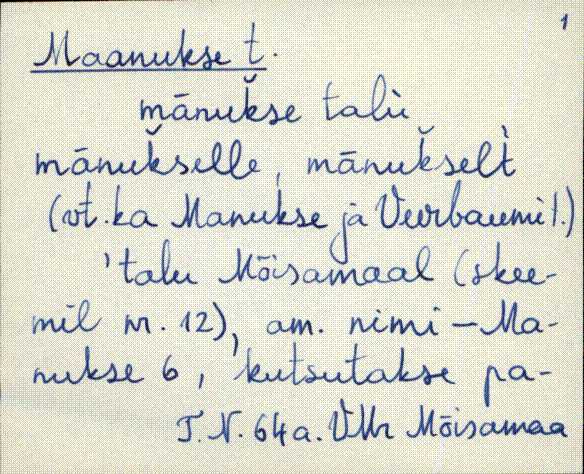 1
Maanukse t.
mānuk̆se talù
mānuk̆selle, mānuk̆selt̀
(vt. ka Manukse ja Veerbaumi t.)
'talu Mõisamaal (skee-
mil nr. 12), am. nimi – Ma-
nukse 6, 'kutsutakse pa-
T. N. 64a. VMr Mõisamaa